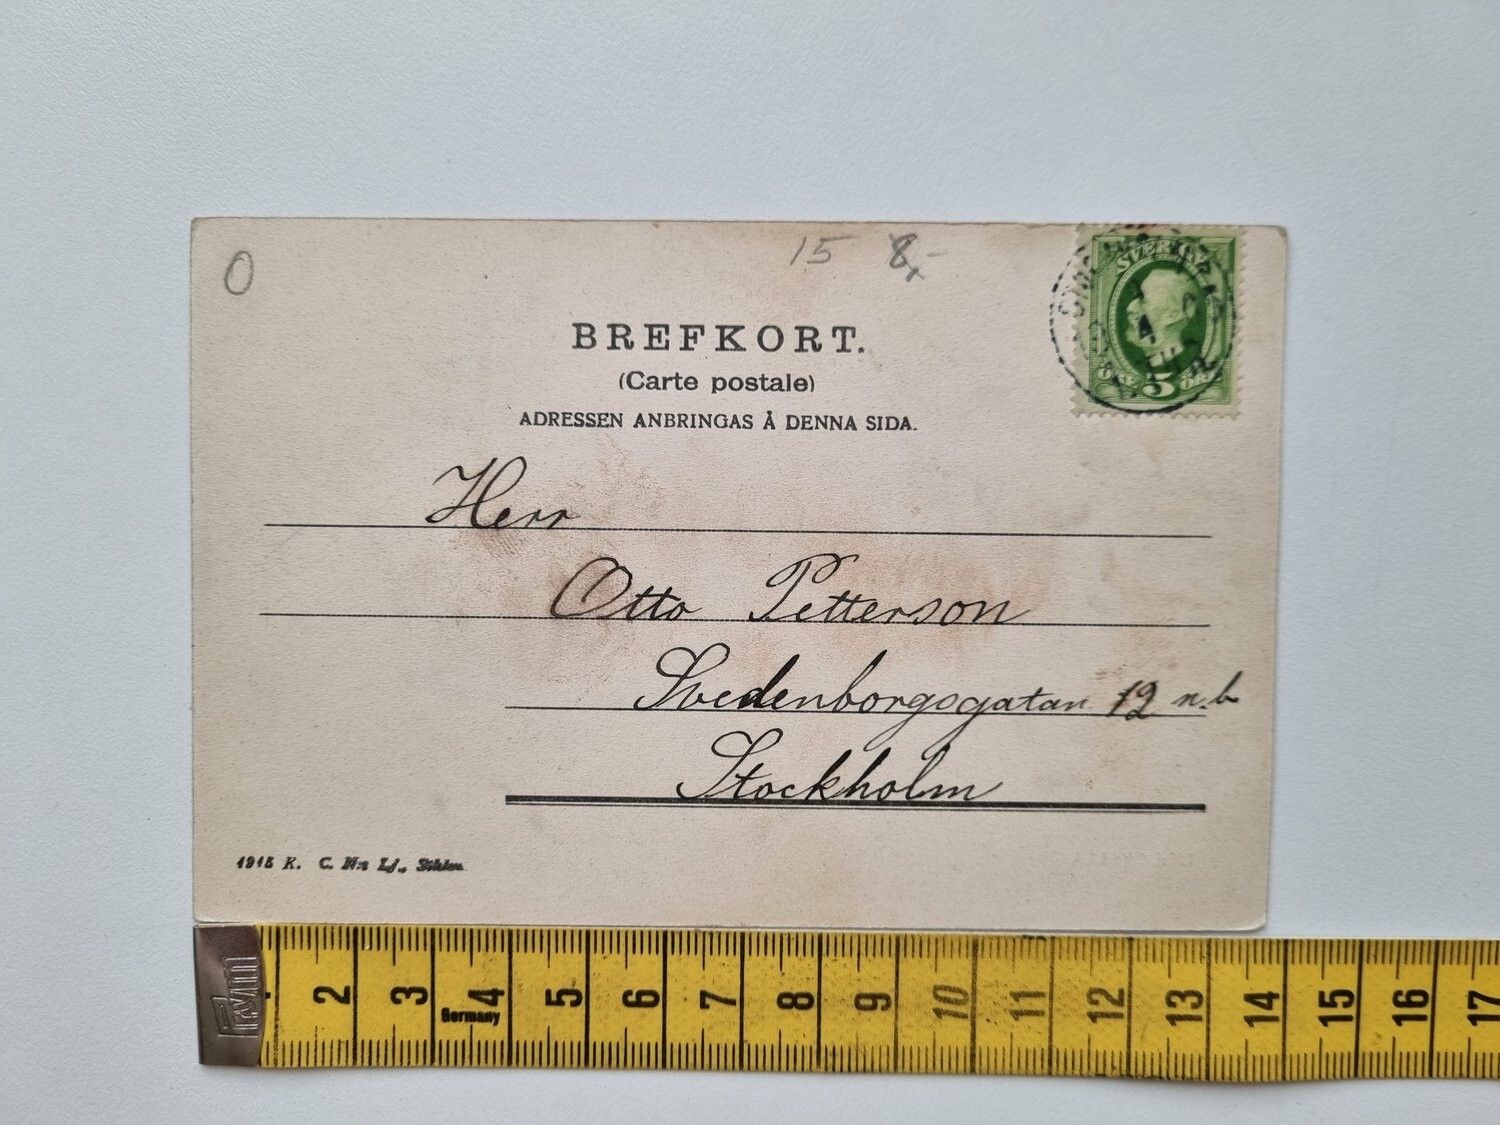 O
15 8,-
SVERIGE
ÖRE 5 ÖRE
BREFKORT.
(Carte postale)
ADRESSEN ANBRINGAS Å DENNA SIDA.
Herr
Otto Petterson
Svedenborgsgatan 12 n.b
Stockholm
1915 K. C. N:s Lj., Sthlm
2 3 4 5 6 7 8 9 10 11 12 13 14 15 16 17
Germany